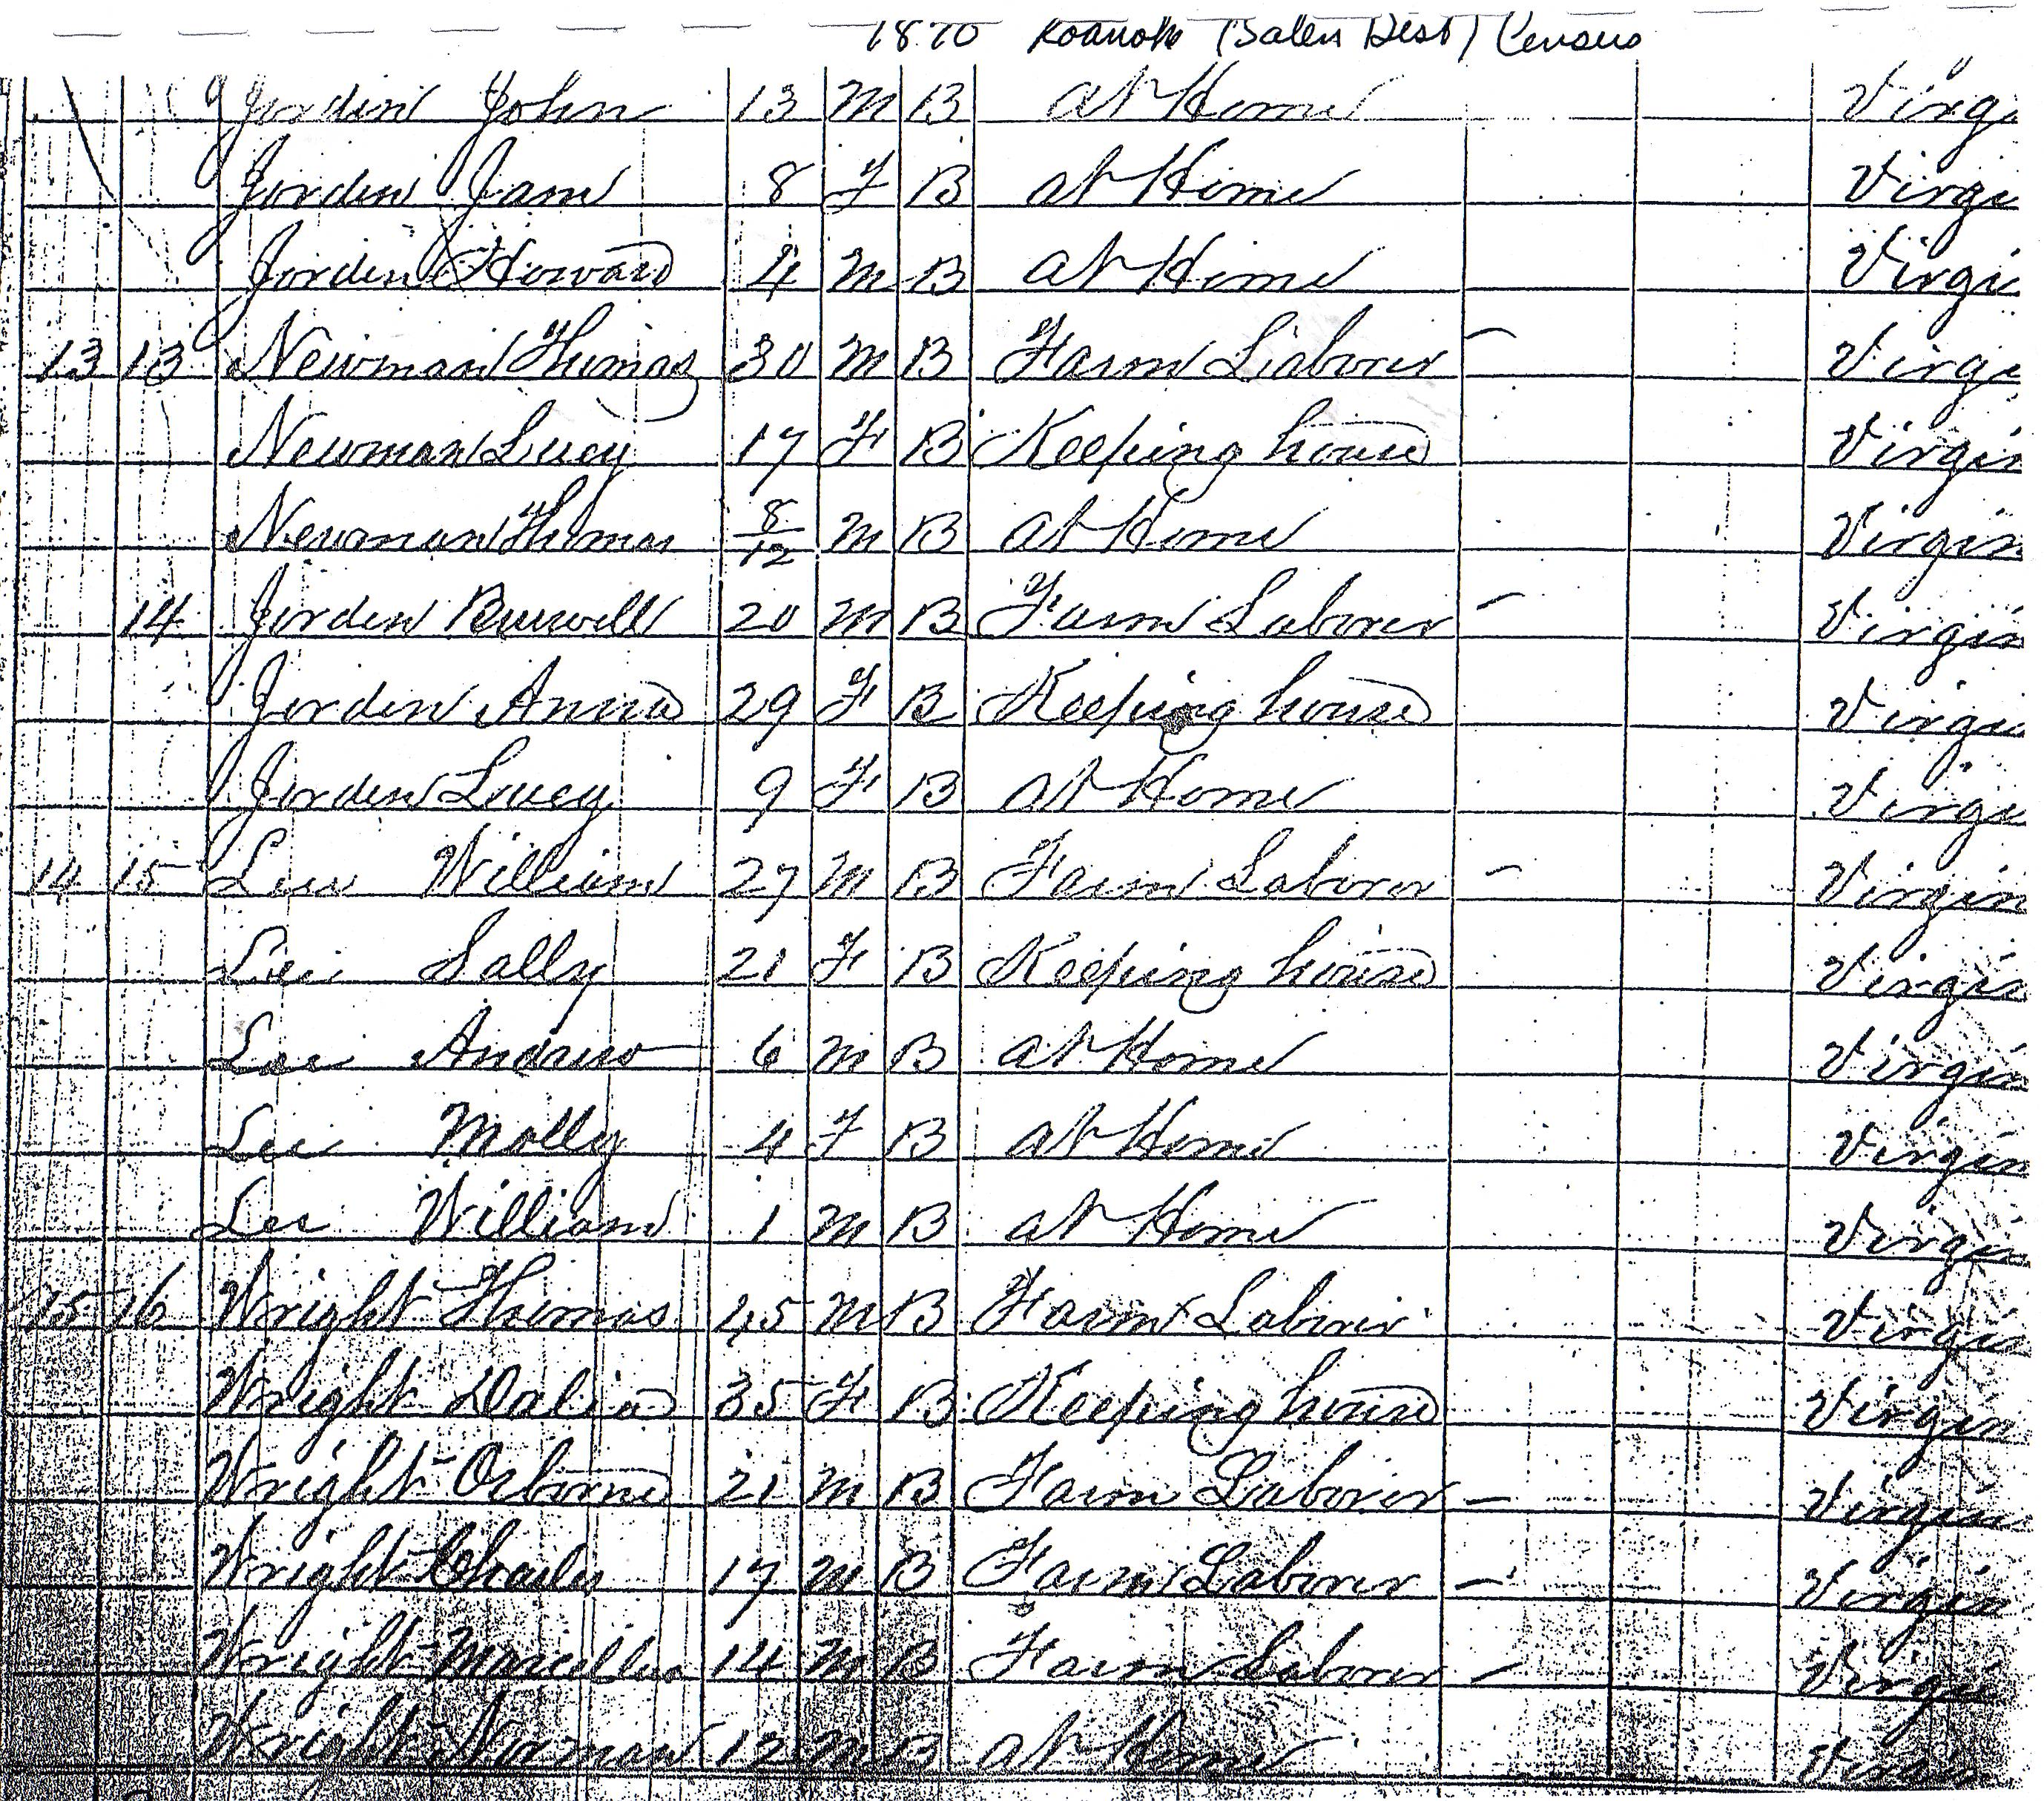 1870 Roanoke (Salem Dist) Census
Jordin John 13 M B at Home Virgi
Jorden Jane 8 F B at Home Virgi
Jorden Howard 4 M B at Home Virgi
13 13 Newman Thomas 30 M B Farm Laborer – Virgi
Newman Lucy 17 F B Keeping house Virgin
Newman Thomas 8/12 M B at Home Virgin
14 Jorden Burwell 20 M B Farm Laborer – Virgin
Jorden Anna 29 F B Keeping house Virgi
Jorden Lucy 9 F B at Home Virgi
14 15 Lee William 27 M B Farm Laborer – Virgin
Lee Sally 21 F B Keeping house Virgin
Lee Andrew 6 M B at Home Virgin
Lee Molly 4 F B at Home Virgin
Lee William 1 M B at Home Virgin
15 16 Wright Thomas 45 M B Farm Laborer Virgin
Wright Dalia 35 F B Keeping house Virgin
Wright Osborne 21 M B Farm Laborer – Virgin
Wright Charles 17 M B Farm Laborer – Virgin
Wright Marcellus 14 M B Farm Laborer – Virgi
Wright Norman 12 M B at Home Virgi